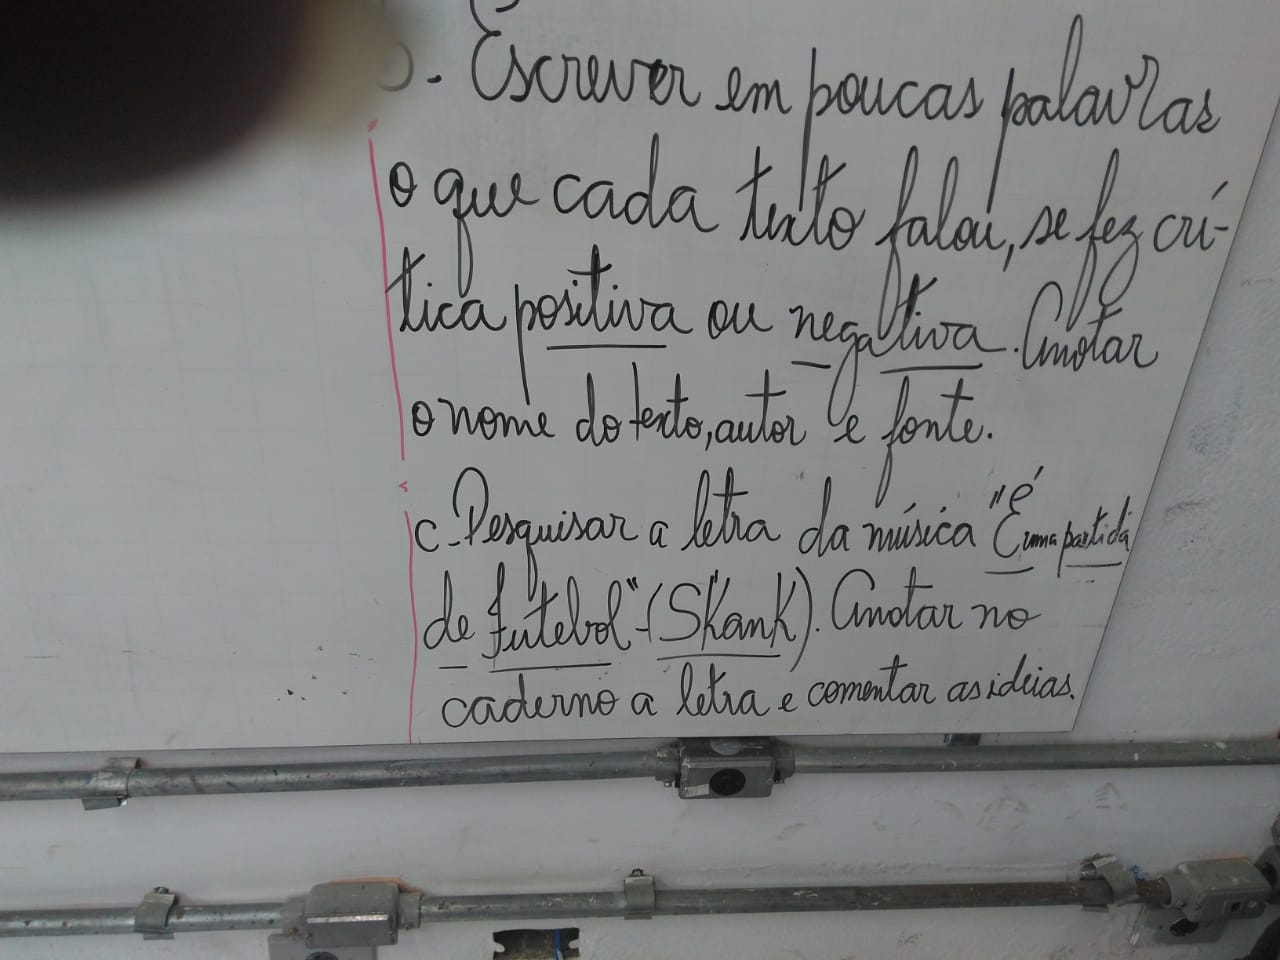 b. Escrever em poucas palavras
o que cada texto falou, se fez crí-
tica positiva ou negativa. Anotar
o nome do texto, autor e fonte.
c. Pesquisar a letra da música "É uma partida
de futebol" - (Skank). Anotar no
caderno a letra e comentar as ideias.